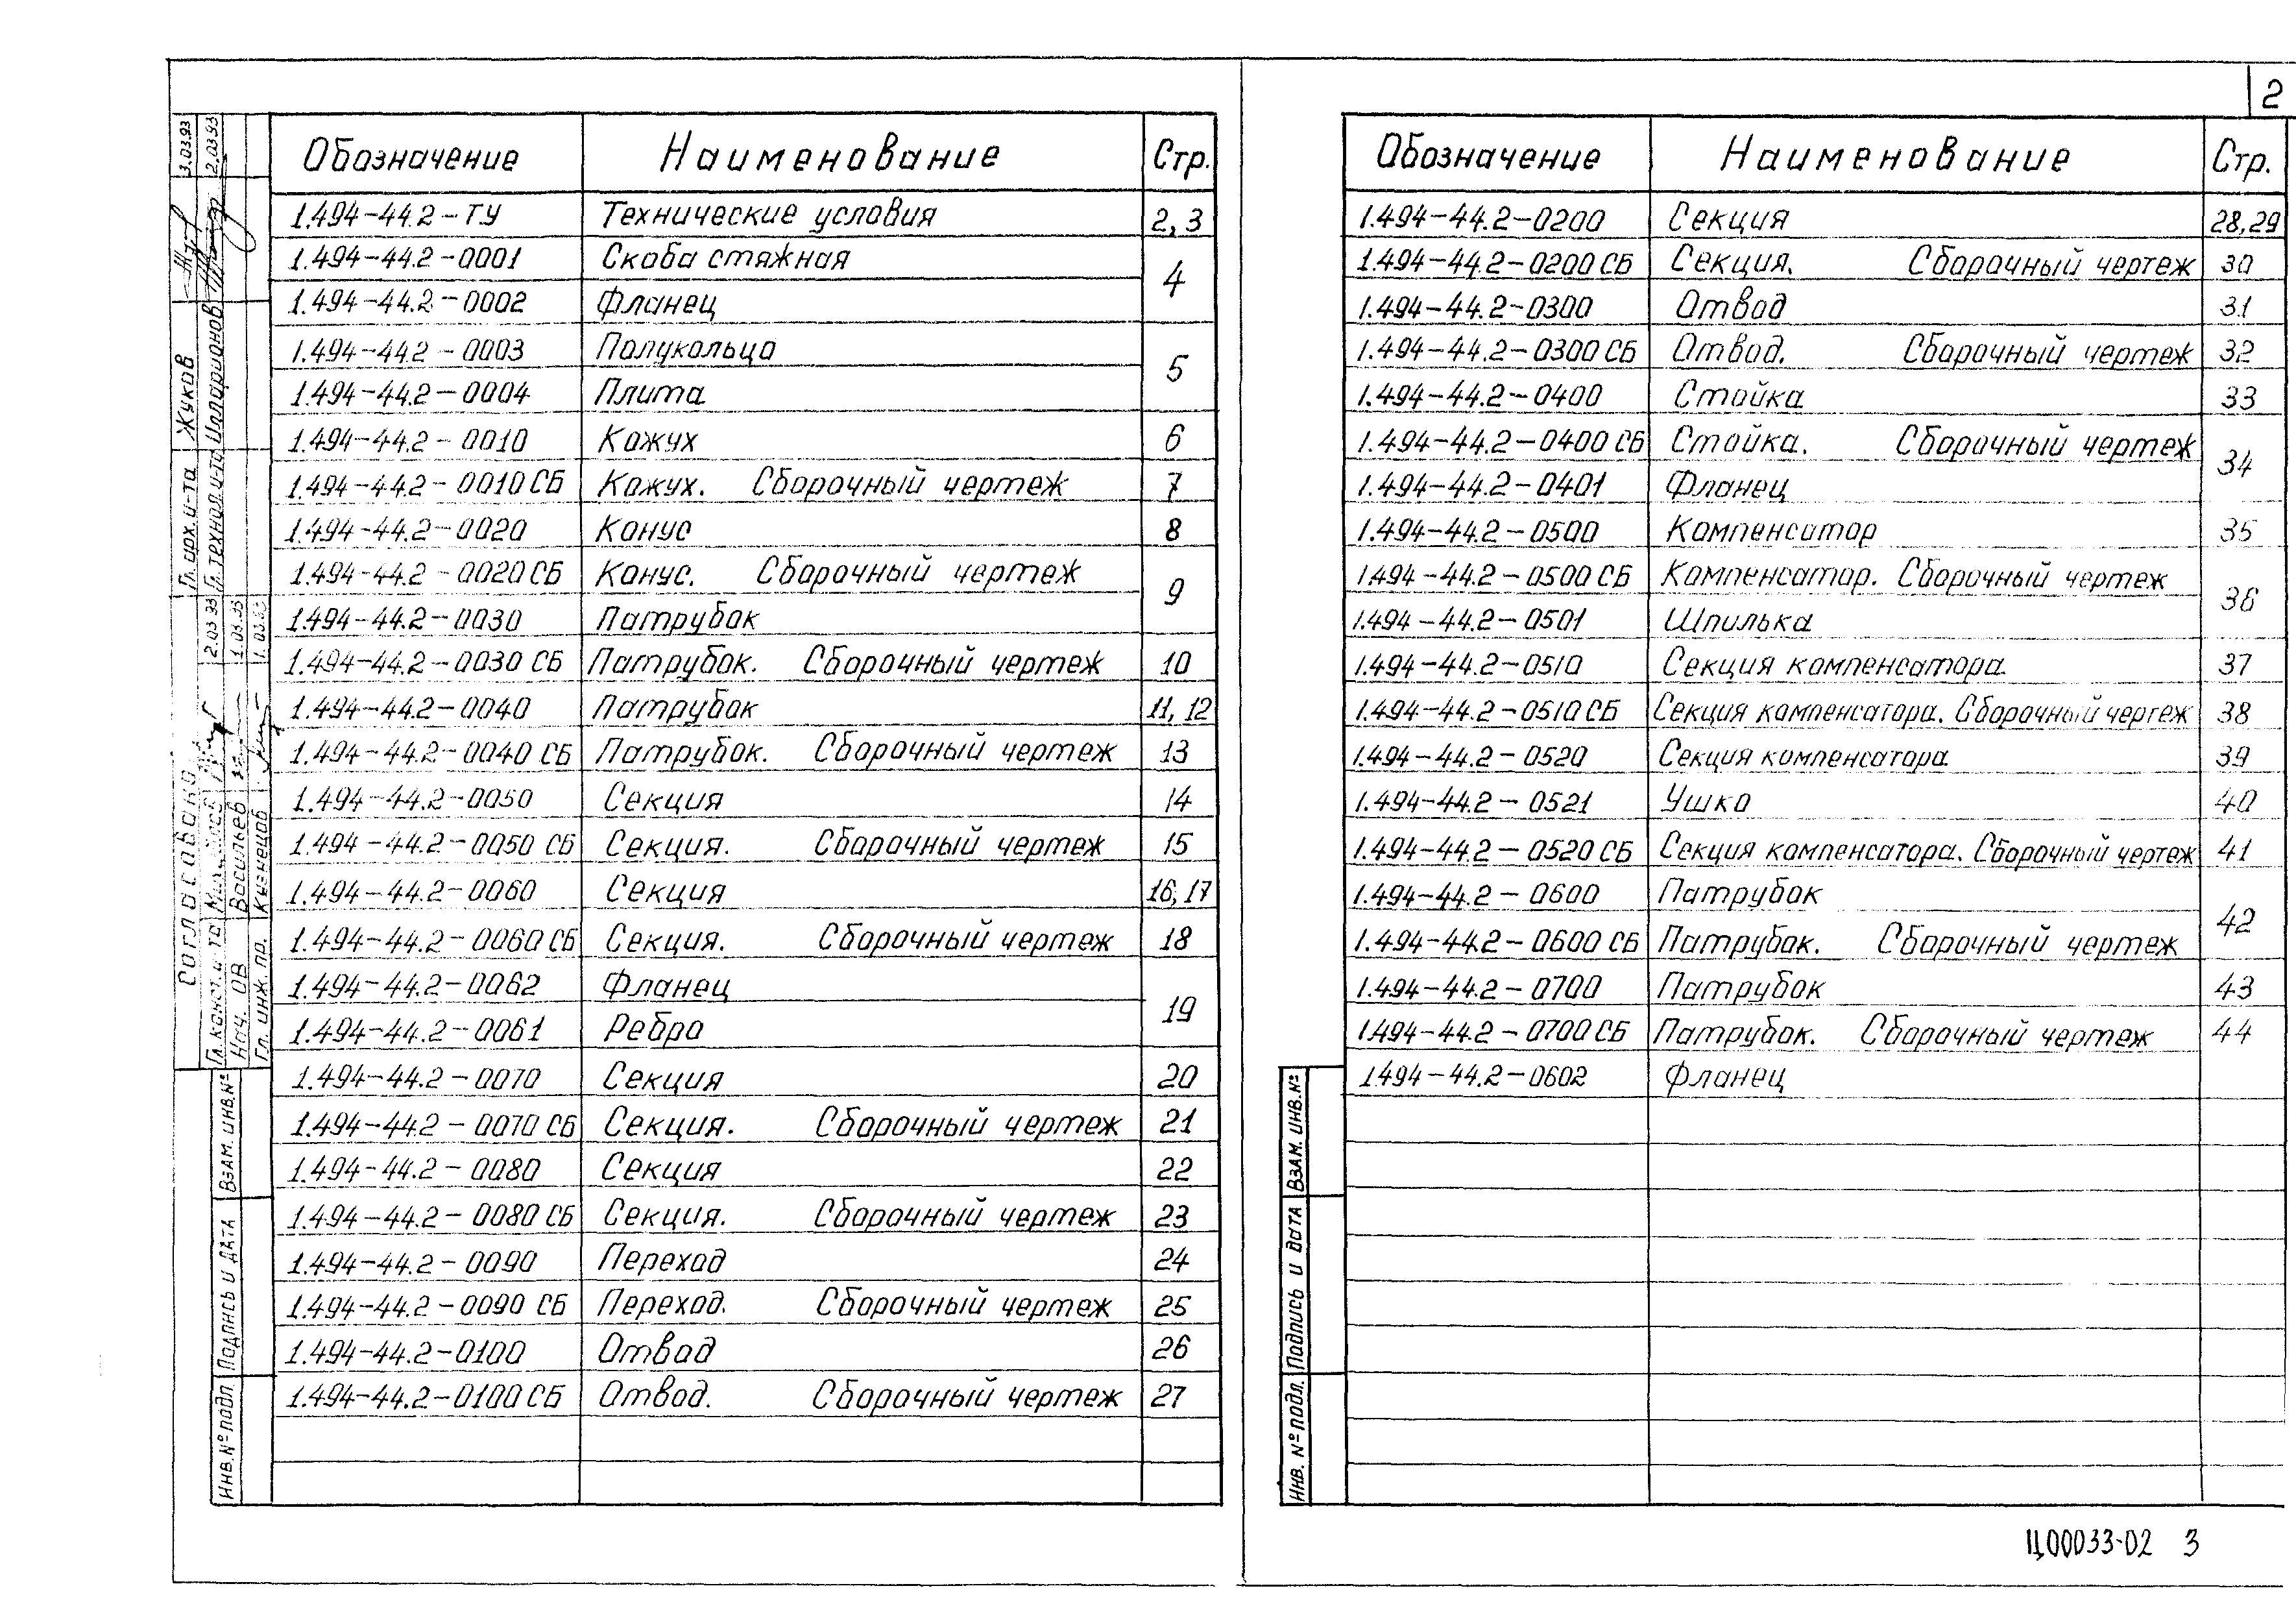 2
Обозначение Наименование Стр.
1.494-44.2-ТУ Технические условия 2,3
1.494-44.2-0001 Скоба стяжная 4
1.494-44.2-0002 Фланец
1.494-44.2-0003 Полукольцо 5
1.494-44.2-0004 Плита
1.494-44.2-0010 Кожух 6
1.494-44.2-0010 СБ Кожух. Сборочный чертеж 7
1.494-44.2-0020 Конус 8
1.494-44.2-0020 СБ Конус. Сборочный чертеж 9
1.494-44.2-0030 Патрубок
1.494-44.2-0030 СБ Патрубок. Сборочный чертеж 10
1.494-44.2-0040 Патрубок 11, 12
1.494-44.2-0040 СБ Патрубок. Сборочный чертеж 13
1.494-44.2-0050 Секция 14
1.494-44.2-0050 СБ Секция. Сборочный чертеж 15
1.494-44.2-0060 Секция 16, 17
1.494-44.2-0060 СБ Секция. Сборочный чертеж 18
1.494-44.2-0062 Фланец 19
1.494-44.2-0061 Ребро
1.494-44.2-0070 Секция 20
1.494-44.2-0070 СБ Секция. Сборочный чертеж 21
1.494-44.2-0080 Секция 22
1.494-44.2-0080 СБ Секция. Сборочный чертеж 23
1.494-44.2-0090 Переход 24
1.494-44.2-0090 СБ Переход. Сборочный чертеж 25
1.494-44.2-0100 Отвод 26
1.494-44.2-0100 СБ Отвод. Сборочный чертеж 27
Обозначение Наименование Стр.
1.494-44.2-0200 Секция 28,29
1.494-44.2-0200 СБ Секция. Сборочный чертеж 30
1.494-44.2-0300 Отвод 31
1.494-44.2-0300 СБ Отвод. Сборочный чертеж 32
1.494-44.2-0400 Стойка 33
1.494-44.2-0400 СБ Стойка. Сборочный чертеж 34
1.494-44.2-0401 Фланец
1.494-44.2-0500 Компенсатор 35
1.494-44.2-0500 СБ Компенсатор. Сборочный чертеж 36
1.494-44.2-0501 Шпилька
1.494-44.2-0510 Секция компенсатора. 37
1.494-44.2-0510 СБ Секция компенсатора. Сборочный чертеж 38
1.494-44.2-0520 Секция компенсатора 39
1.494-44.2-0521 Ушко 40
1.494-44.2-0520 СБ Секция компенсатора. Сборочный чертеж 41
1.494-44.2-0600 Патрубок 42
1.494-44.2-0600 СБ Патрубок. Сборочный чертеж
1.494-44.2-0700 Патрубок 43
1.494-44.2-0700 СБ Патрубок. Сборочный чертеж 44
1494-44.2-0602 Фланец
Согласовано
Гл. арх. и-та Жуков 3.03.93
Гл. технол. и-та Илларионов 2.03.93
Гл. конст. и-та 2.03.93
Нач. ОВ Васильев 1.03.93
Гл. инж. пр. Кузнецов 1.03.93
Инв. № подл. Подпись и дата Взам. инв. №
Инв. № подл. Подпись и дата Взам. инв. №
Ц00033-02 3